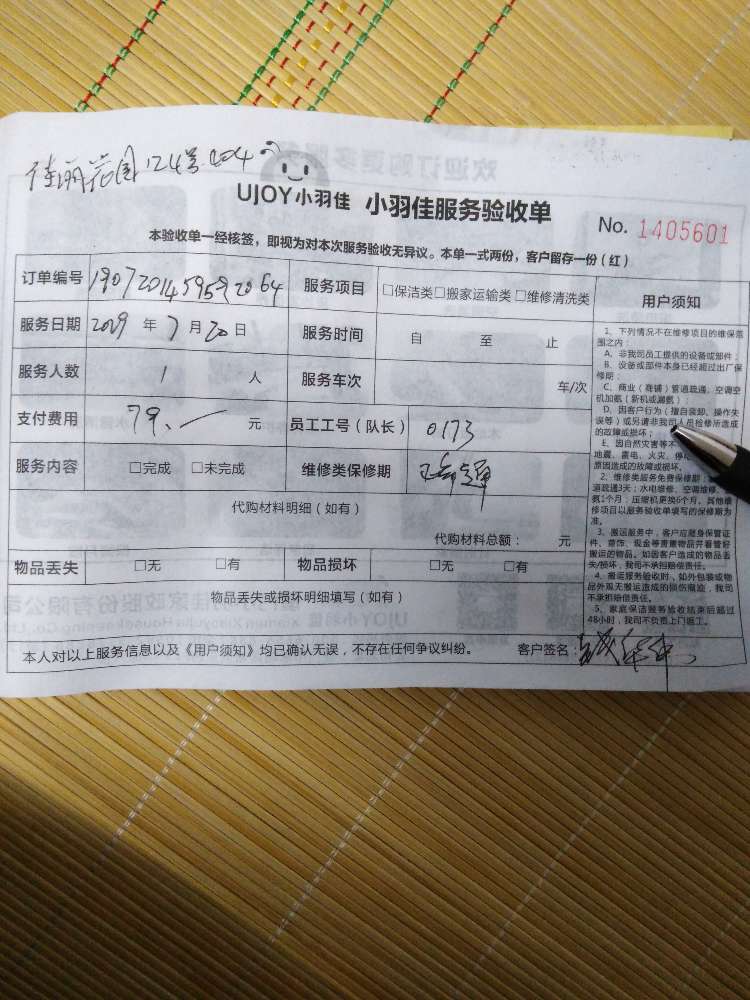 佳丽花园124号204
UJOY小羽佳 小羽佳服务验收单
No. 1405601
本验收单一经核签，即视为对本次服务验收无异议。本单一式两份，客户留存一份（红）
订单编号 服务项目 □保洁类□搬家运输类□维修清洗类
服务日期 2019 年 7 月 20 日 服务时间 自 至 止
服务人数 1 人 服务车次 车/次
支付费用 79. 元 员工工号（队长） 0173
服务内容 □完成 □未完成 维修类保修期
代购材料明细（如有）
代购材料总额： 元
物品丢失 □无 □有 物品损坏 □无 □有
物品丢失或损坏明细填写（如有）
本人对以上服务信息以及《用户须知》均已确认无误，不存在任何争议纠纷。 客户签名：
用户须知
1、下列情况不在维修项目的维保范
围之内：
A、非我司员工提供的设备或部件；
B、设备或部件本身已经超过出厂保
修期；
C、商业（商铺）管道疏通、空调空
机加氨（新机或漏氨）
D、因客户行为（擅自装卸、操作失
误等）或另请非我司人员检修所造成
的故障或损坏；
E、因自然灾害等不
地震、雷电、火灾、停
原因造成的故障或损坏。
2、维修类服务免费保修期：
道疏通3天；水电维修、空调维修、
氨1个月；压缩机更换6个月，其他维
修项目以服务验收单填写的保修期为
准。
3、搬运服务中，客户应随身保管证
件、首饰、现金等贵重物品并看管好
搬运的物品。如因客户造成的物品丢
失/损坏，我司不承担赔偿责任。
4、搬运服务验收时，如外包装或物
品外观无搬运造成的损伤痕迹，我司
不承担赔偿责任。
5、家庭保洁服务验收结束后超过
48小时，我司不负责上门返工。